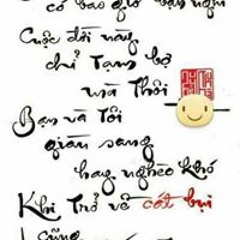 có bao giờ bạn nghĩ
Cuộc đời này
chỉ Tạm bợ
mà Thôi
Bạn và Tôi
giàu sang
hay nghèo khó
Khi Trở về cát bụi
Cũng